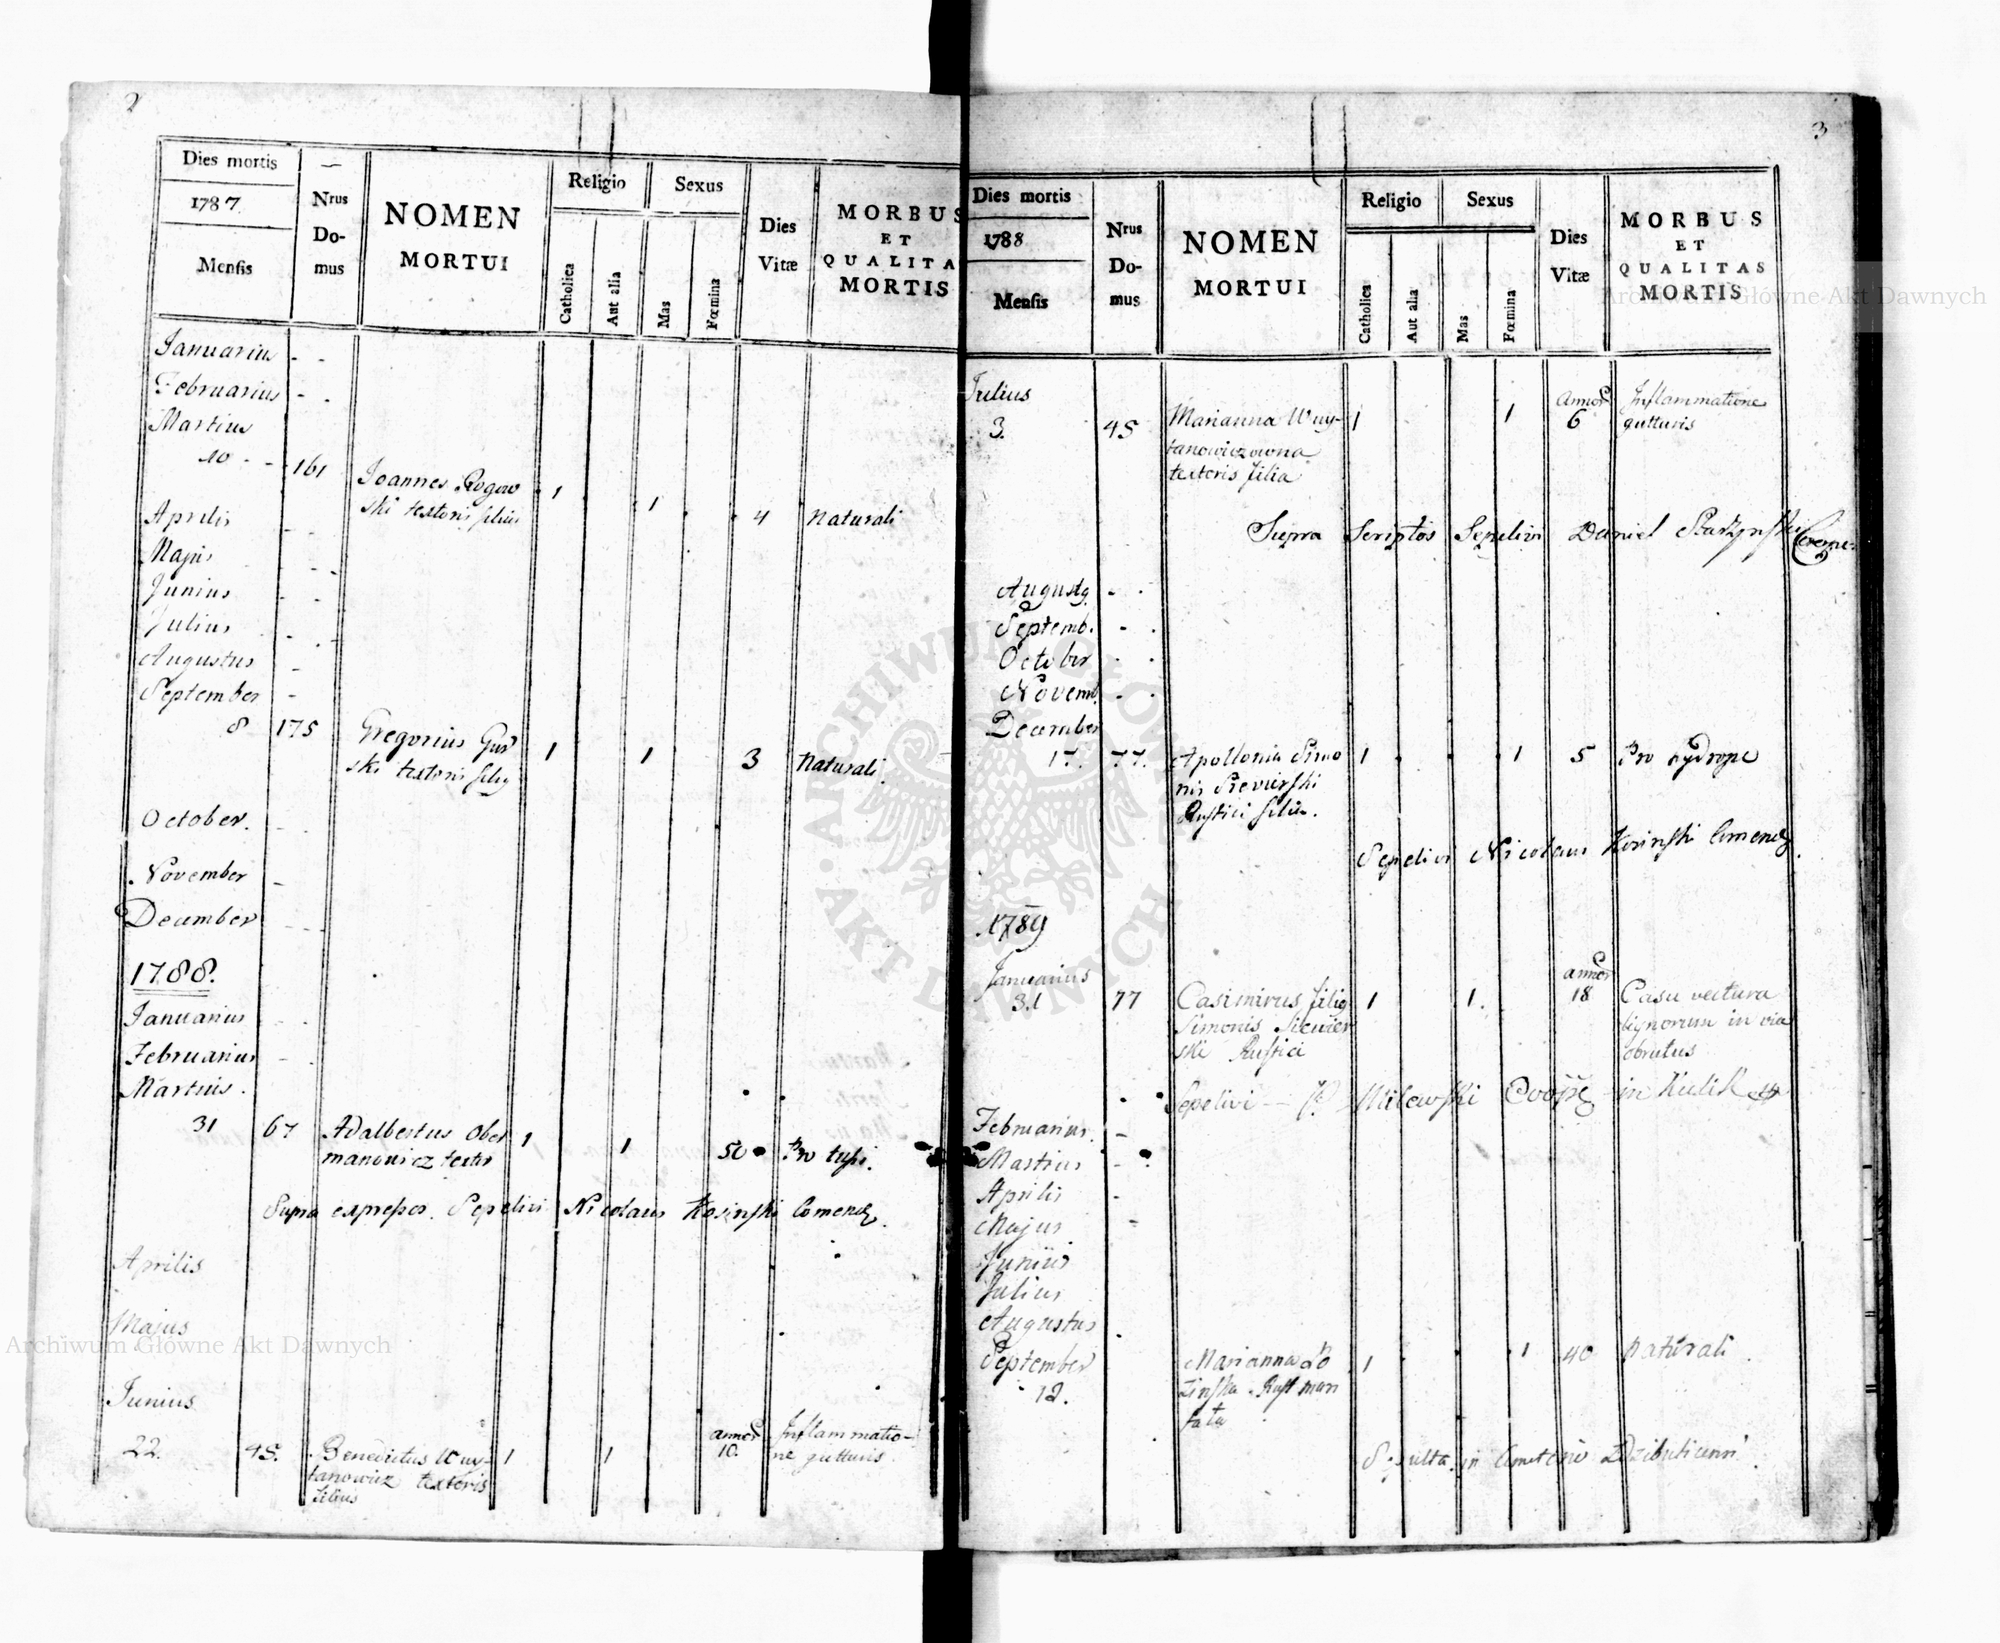 2
Dies mortis
1787
Mensis
Nrus Do-mus
NOMEN
MORTUI
Religio
Catholica
Aut alia
Sexus
Mas
Fœmina
Dies Vitæ
MORBUS
ET
QUALITA
MORTIS
Januarius - -
Februarius - -
Martius
10 - - 161 Joannes Rogow 1 1 4 Naturali
ski textoris filius
Aprilis
Majus
Junius - -
Julius - -
Augustus -
September -
8 175 Gregorius Gur 1 1 3 Naturali.
ski textoris filig
October. - -
November -
December - - -
1788.
Januarius - -
Februarius -
Martius.
31 67 Adalbertus Ober 1 1 50 Pro tussi.
manowicz textor
Supra expressos Sepelivi Nicolaus Kosinski Comend.
Aprilis
Majus
Junius
annor
22. 45. Benedictus Woy- 1 1 10. Inflammatio-
tanowicz textoris ne gutturis
filius
3
Dies mortis
1788
Mensis
Nrus Do-mus
NOMEN
MORTUI
Religio
Catholica
Aut alia
Sexus
Mas
Fœmina
Dies Vitæ
MORBUS
ET
QUALITAS
MORTIS
Julius
Annor
3. 45 Marianna Woy- 1 1 6 Inflammatione
tanowiczowna gutturis
textoris filia
Supra Scriptos Sepelivi Daniel
Augustg - -
Septemb. - -
October - -
Novemb. - -
December
17. 77. Apollonia Simo 1 1 5 Pro hydrope
nis Siewierski
Rustici filia.
Sepelivi Nicolaus Kosinski Comend.
1789
Januarius
annor
31 77 Casimirus filig 1 1. 18 Casu vectura
Simonis Siewier lignorum in via
ski Rustici obrutus
Sepelivi Milewski in
Februarius. -
Martius -
Aprilis -
Majus -
Junius
Julius
Augustus
September Marianna Lo 1 1 40 Naturali.
12. zinska Rust
Sepulta in Cmeterio
Archiwum Główne Akt Dawnych
Archiwum Główne Akt Dawnych
ARCHIWUM GŁÓWNE
AKT DAWNYCH